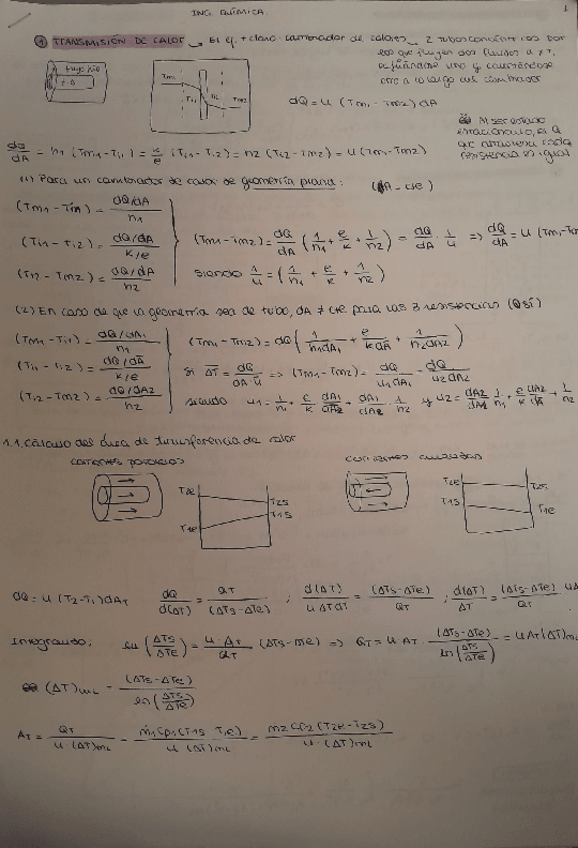 ING. QUÍMICA.
1
① TRANSMISIÓN DE CALOR → El ej. + claro cambiador de calores → 2 tubos concéntricos por
los que fluyen dos fluidos a ≠ T,
enfriándose uno y calentándose
otro a lo largo del cambiador
Tm1
Ti1
Ti2
Tm2
dQ = U (Tm1 - Tm2) dA
Al ser estado
estacionario, el Q
que atraviesa cada
resistencia es igual
dQ/dA = h1 (Tm1 - Ti1) = k/e (Ti1 - Ti2) = h2 (Ti2 - Tm2) = U (Tm1 - Tm2)
(1) Para un cambiador de calor de geometría plana: (A = cte)
(Tm1 - Ti1) = dQ/dA / h1
(Ti1 - Ti2) = dQ/dA / k/e
(Ti2 - Tm2) = dQ/dA / h2
(Tm1 - Tm2) = dQ/dA (1/h1 + e/k + 1/h2) = dQ/dA · 1/U => dQ/dA = U (Tm1 - Tm
siendo 1/U = (1/h1 + e/k + 1/h2)
(2) En caso de que la geometría sea de tubo, dA ≠ cte para las 3 resistencias (Q sí)
(Tm1 - Ti1) = dQ/dA1 / h1
(Ti1 - Ti2) = dQ/dA / k/e
(Ti2 - Tm2) = dQ/dA2 / h2
(Tm1 - Tm2) = dQ (1/h1dA1 + e/k dA + 1/h2dA2)
si ΔT = dQ/dA·U => (Tm1 - Tm2) = dQ/U1 dA1 = dQ/U2 dA2
siendo
1.1. Cálculo del área de transferencia de calor
corrientes paralelas
corrientes cruzadas
T2e
T1e
T2s
T1s
T2e
T1s
T2s
T1e
dQ = U (T2 - T1) dAT
dQ/d(ΔT) = QT/(ΔTs - ΔTe) ;
Integrando; ln (ΔTs/ΔTe) = U·AT/QT (ΔTs - ΔTe) => QT = U·AT · (ΔTs - ΔTe)/ln(ΔTs/ΔTe) = U AT (ΔT)mL
(ΔT)mL = (ΔTs - ΔTe)/ln(ΔTs/ΔTe)
AT = QT/U·(ΔT)mL = m1 Cp1 (T1s - T1e)/U (ΔT)mL = m2 Cp2 (T2e - T2s)/U·(ΔT)mL